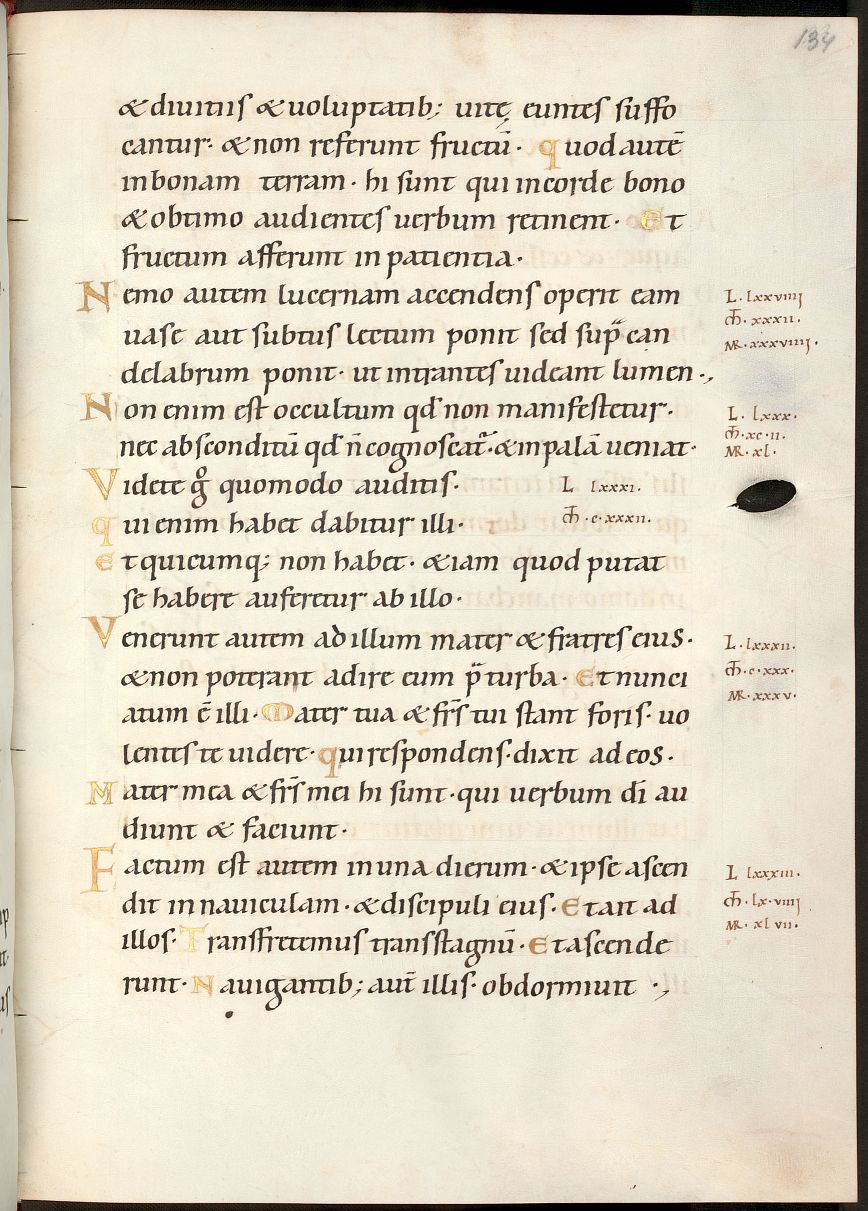 134
& diuitiis & uoluptatib; uitę euntes suffo
cantur· & non referunt fructū· quod autē
in bonam terram· hi sunt qui in corde bono
& obtimo audientes uerbum retinent· Et
fructum afferunt in patientia·
Nemo autem lucernam accendens operit eam
L· lxxviiii
cħ· xxxii·
MR· xxxviiii·
uase aut subtus lectum ponit sed sup̄ can
delabrum ponit· ut intrantes uideant lumen·,
Non enim est occultum qđ non manifestetur·
L· lxxx·
cħ· xc·ii·
MR· xl·
nec absconditū qđ n̄ cognoscat᷑· & in palā ueniat·
Videte gͦ quomodo auditis·
L lxxxi·
qui enim habet dabitur illi·
cħ·c·xxxii·
Et quicumq; non habet· & iam quod putat
se habere auferetur ab illo·
Venerunt autem ad illum mater & fratres eius·
L· lxxxii·
cħ·c·xxx·
MR·xxxv·
& non poterant adire eum p̄ turba· Et nunci
atum ē illi· Mater tua & fr̄s tui stant foris· uo
lentes te uidere· qui respondens· dixit ad eos·
Mater mea & fr̄s mei hi sunt· qui uerbum dī au
diunt & faciunt·
Factum est autem in una dierum· & ipse ascen
L lxxxiii·
cħ·lx·viiii
MR· xl vii·
dit in nauiculam· & discipuli eius· Et ait ad
illos· Transfretemus trans stagnū· Et ascende
runt· Nauigantib; aut̄ illis· obdormiuit ·,